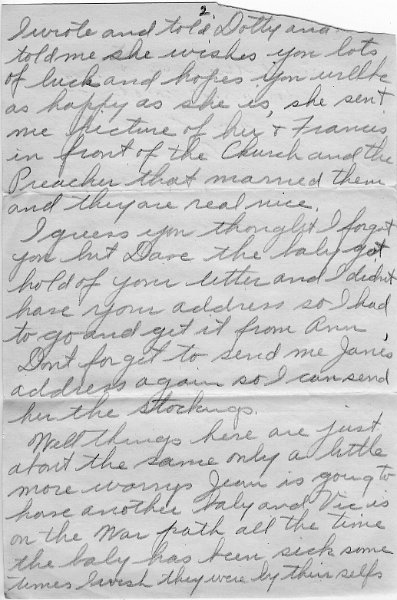 2
I wrote and told Dotty and
told me she wishes you lots
of luck and hopes you will be
as happy as she is, she sent
me picture of her & Francis
in front of the Church and the
Preacher that married them
and they are real nice.
I guess you thought I forgot
you but Dave the baby got
hold of your letter and I didn't
have your address so I had
to go and get it from Ann,
Dont forget to send me Janes
address again so I can send
her the stockings.
Well things here are just
about the same only a little
more worries Jean is going to
have another baby and Vic is
on the War path all the time
the baby has been sick some
times I wish they were by thier selfs